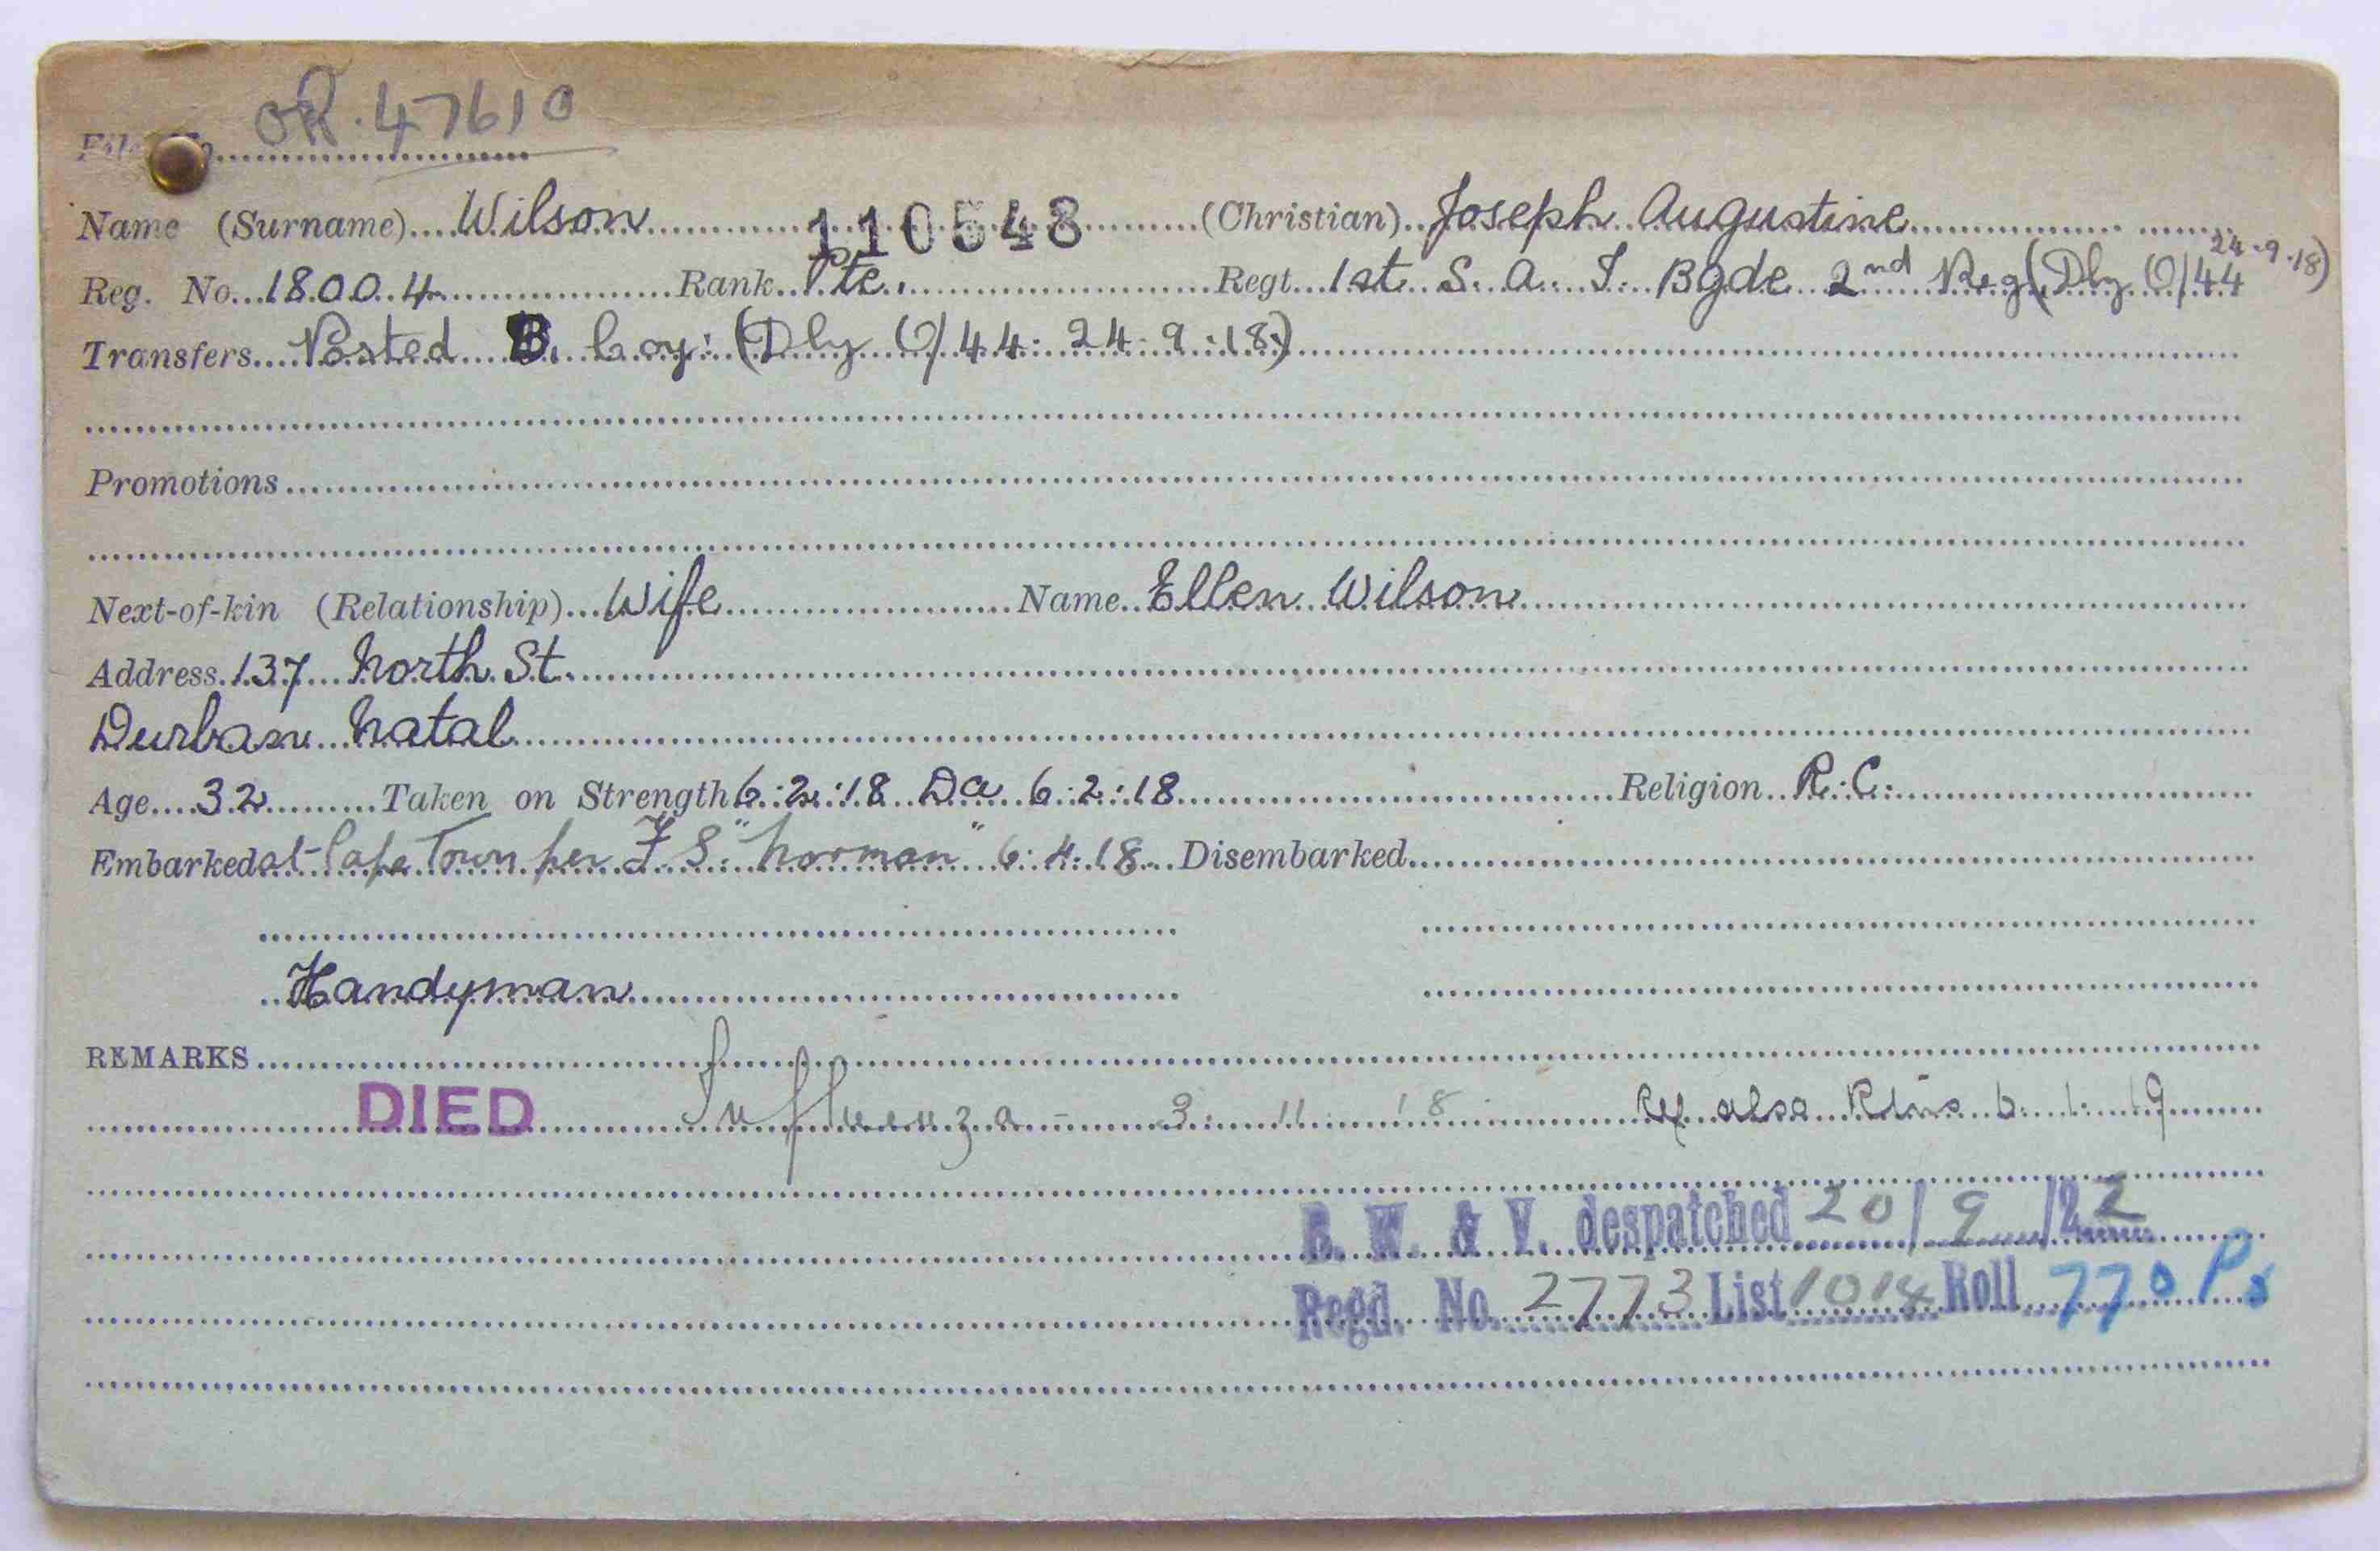 File No. OR. 47610
Name (Surname) Wilson 110548 (Christian) Joseph Augustine
Reg. No. 18004 Rank Pte. Regt. 1st S. A. I. Bgde 2nd Reg (Dly O/44 24.9.18)
Transfers Posted B. Coy: (Dly O/44. 24.9.18)
Promotions
Next-of-kin (Relationship) Wife Name Ellen Wilson
Address 137 North St.
Durban Natal
Age 32 Taken on Strength 6:2:18 Da 6:2:18 Religion R.C.
Embarked at Cape Town per "Norman" 6.4.18 Disembarked
Handyman
REMARKS
DIED Influenza - 3. 11. 18 Ref also 6. 1. 19
B. W. & V. despatched 20/9/22
Regd. No. 2773 List 1014 Roll 770 Ps